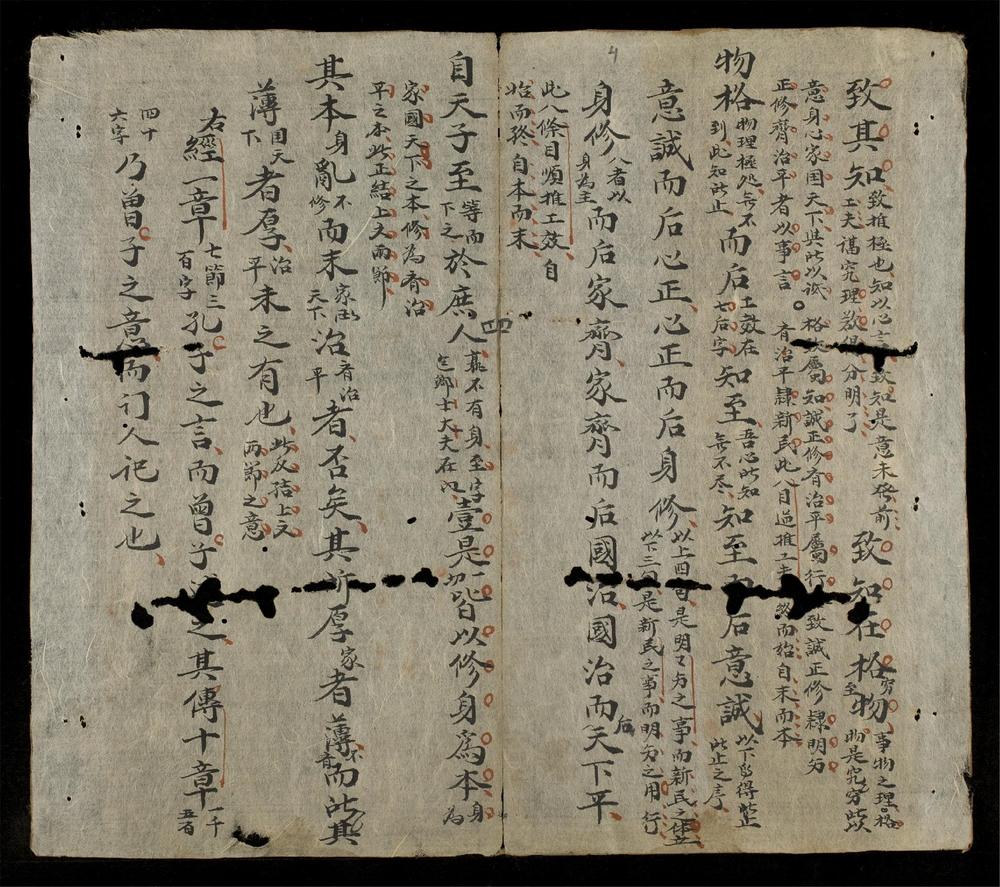 致其知致推極也知以心言致知是意未發前致知在格物窮至事物之理格物是究窮此
工夫謂究理分明了
意身心家国天下與此以誠格致屬知誠正修齊治平屬行格致誠正修隸明明
正修齊治平者以事言齊治平隸新民此八目逆推工夫自末而本
物格物理極処無不到此知所止而后工效在七后字知至吾心所知無不尽知至而后意誠以下皆得所止之序
意誠而后心正心正而后身修以上四目是明明之事而新民之体
以下三目是新民之事而明明之用行
身修八者以身為主而后家齊家齊而后國治國治而后天下平
此八條目順推工效自
始而終自本而末
自天子至等而下之於庶人莫不有身至字包卿士大夫在內壹是一切皆以修身爲本身為
家國天下之本修為齊治
平之本此正結上文兩節
其本身亂不修而末家國天下治齊治平者否矣其所厚家者薄不齊而所其
薄国天下者厚治平未之有也此反結上文兩節之意
右經一章七節三百字孔子之言而曾子述之其傳十章一千五百
四十六字乃曾子之意而门人记之也
四